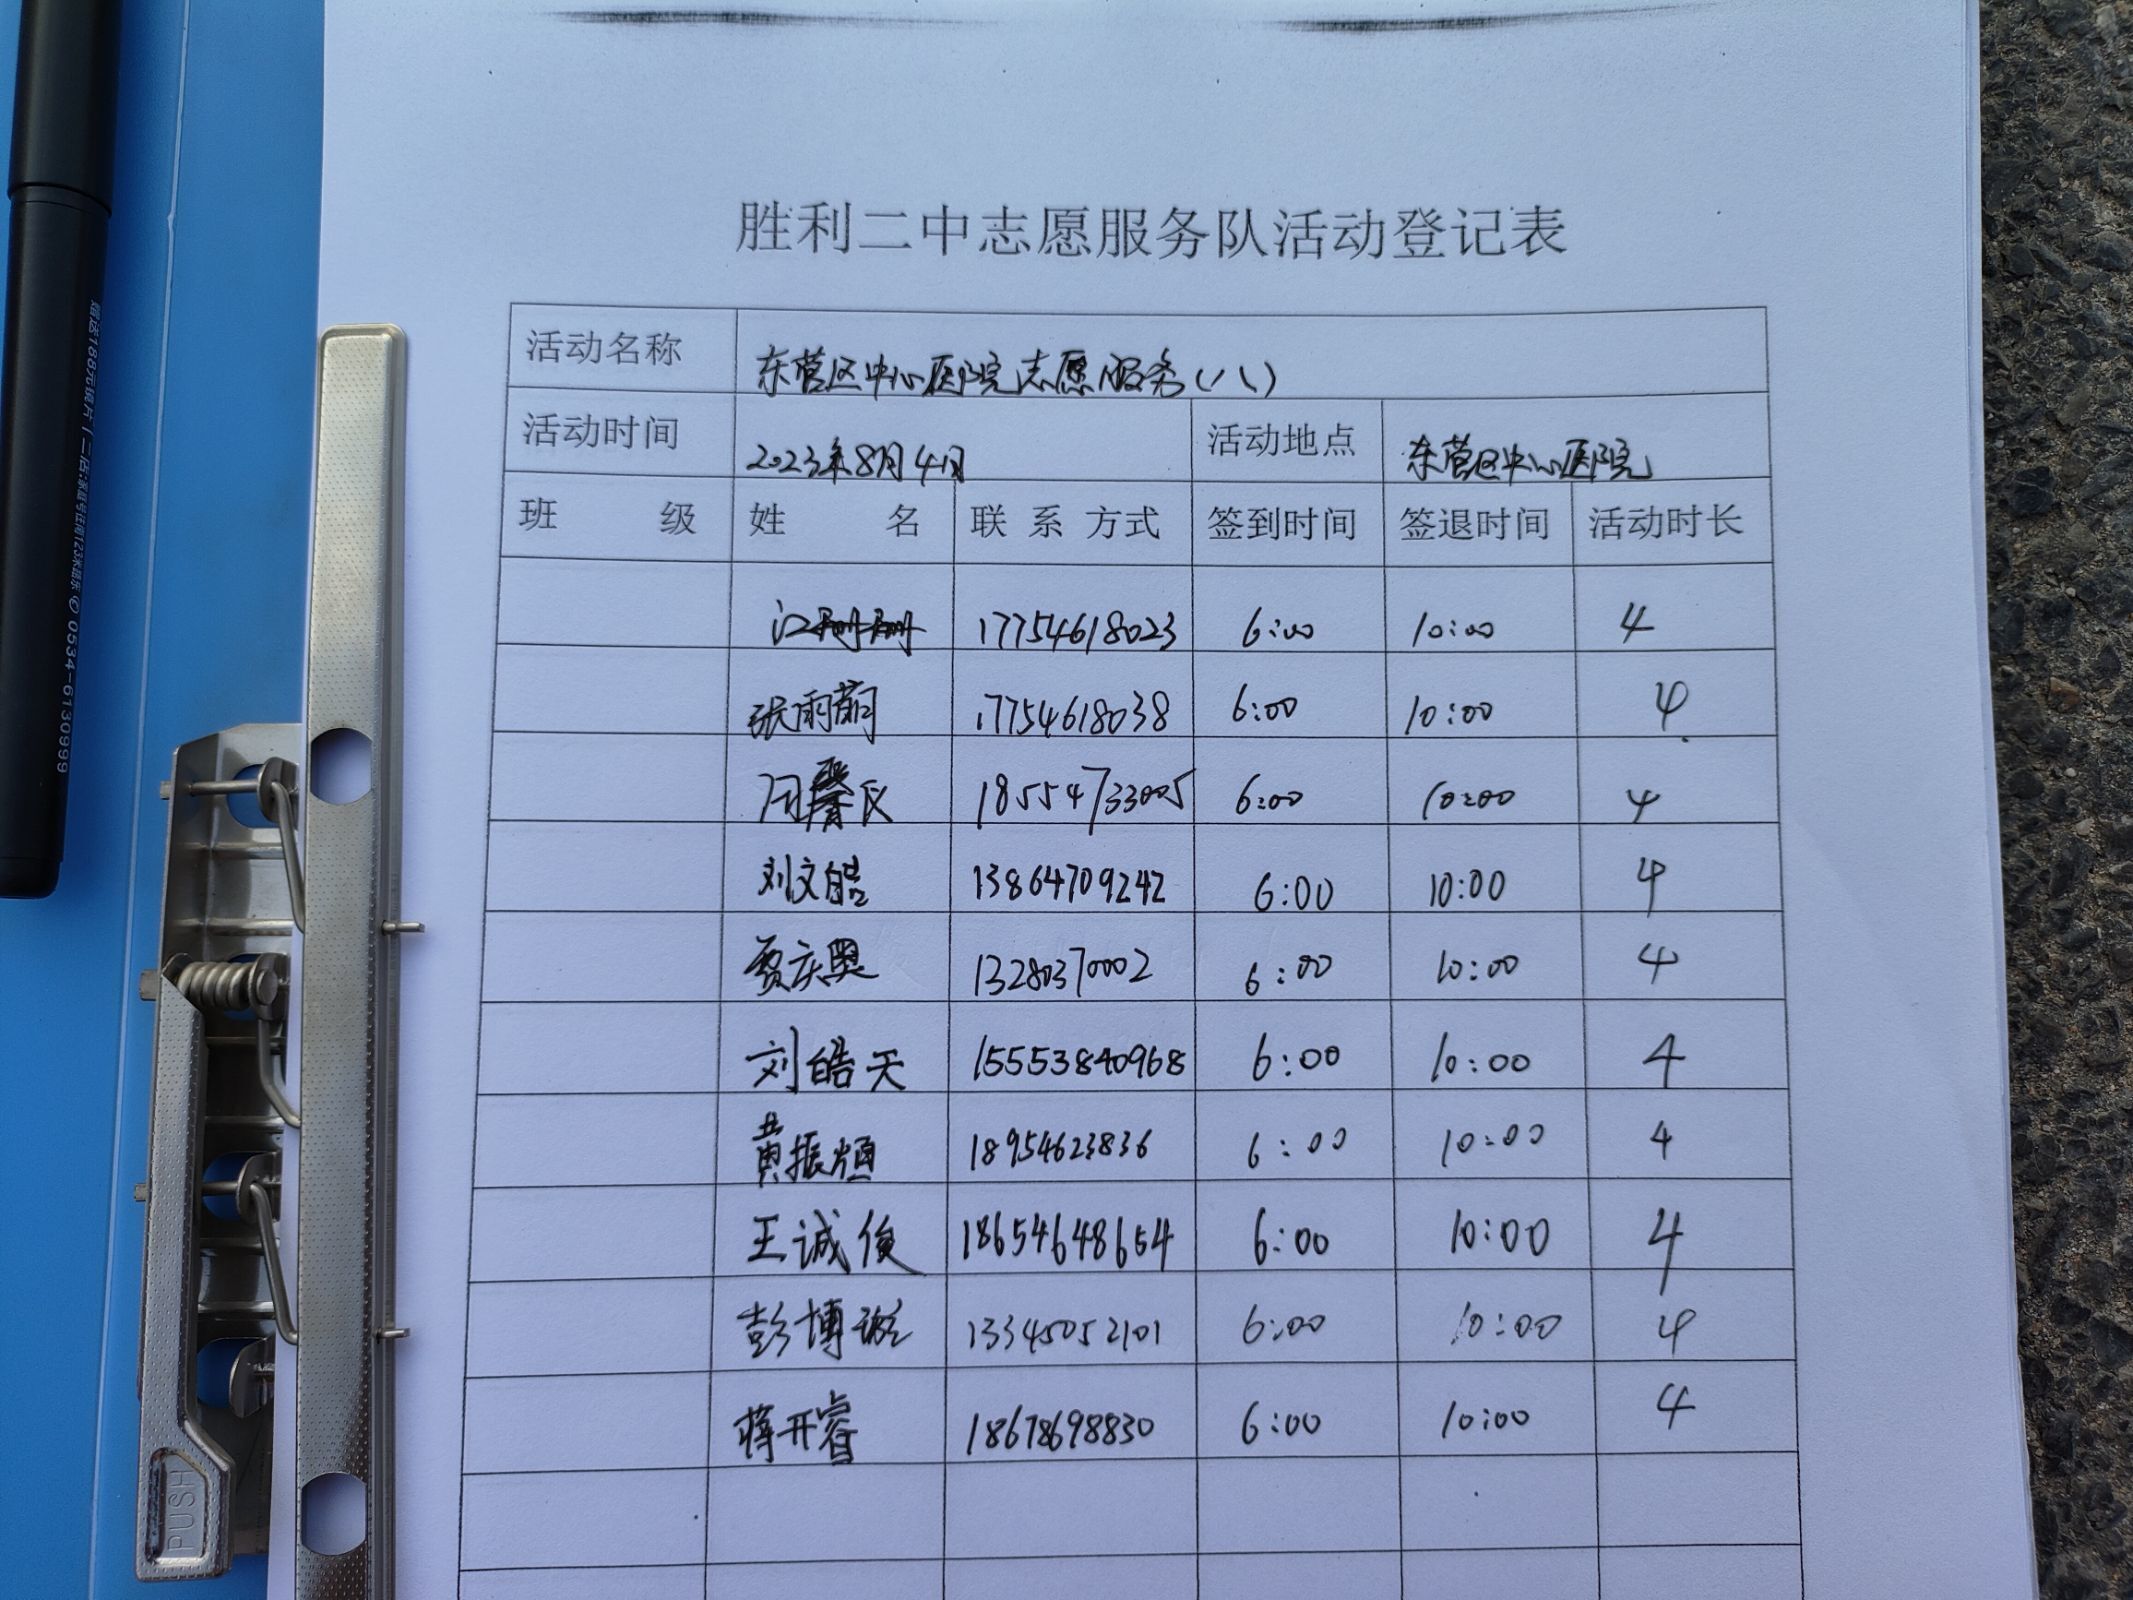 胜利二中志愿服务队活动登记表
活动名称 东营区中心医院志愿服务（八）
活动时间 2023年8月4日 活动地点 东营区中心医院
班 级 姓 名 联 系 方式 签到时间 签退时间 活动时长
江珊珊 17754618023 6:00 10:00 4
张雨萌 17754618038 6:00 10:00 4
闫馨仪 18554733005 6:00 10:00 4
刘文皓 13864709242 6:00 10:00 4
贾庆奥 13280370002 6:00 10:00 4
刘皓天 15553840968 6:00 10:00 4
黄振 18954623836 6:00 10:00 4
王诚俊 18654648654 6:00 10:00 4
彭博 13345052101 6:00 10:00 4
蒋开睿 18678698830 6:00 10:00 4
PUSH
0534-6130999